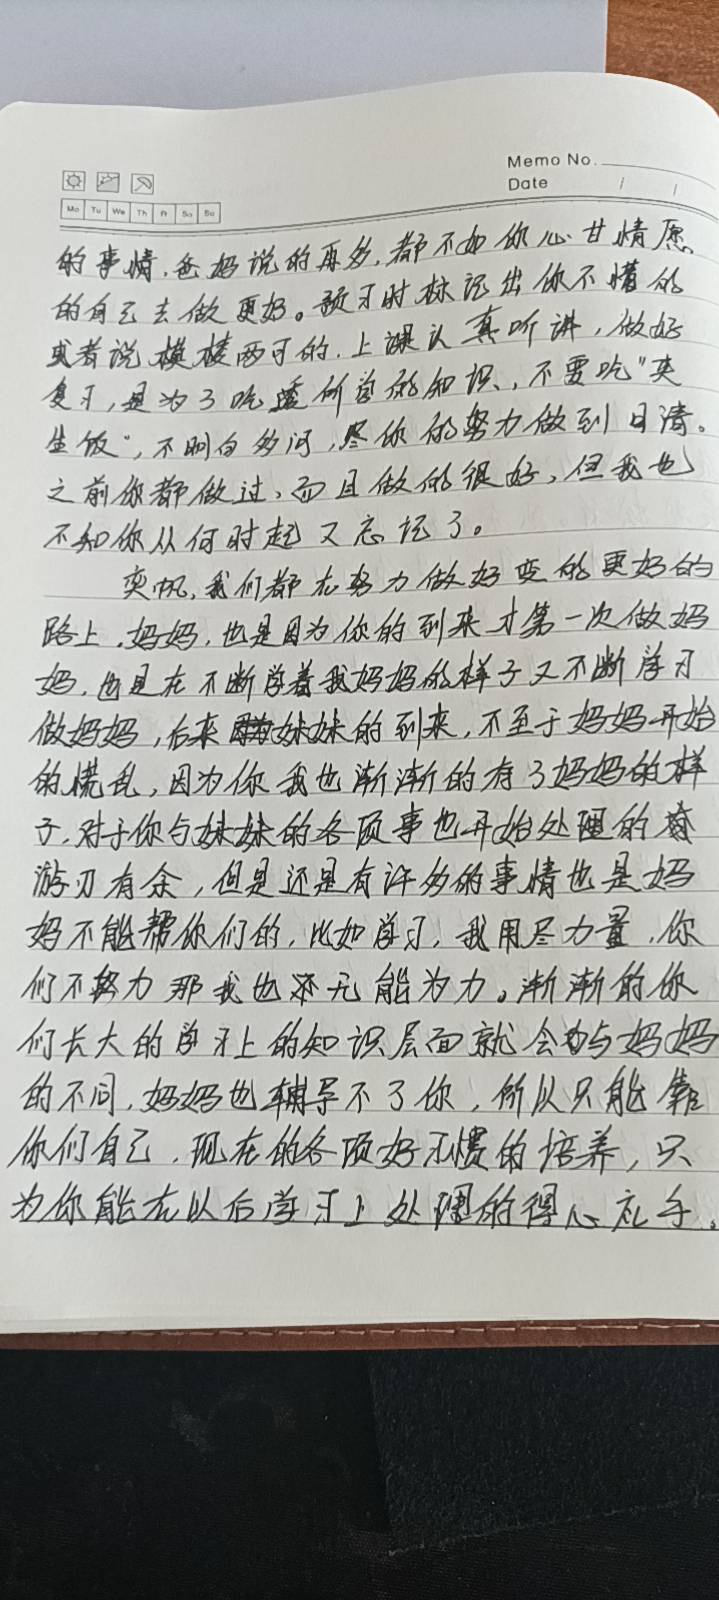 Memo No.
Date / /
Mo Tu We Th Fr Sa Su
的事情,爸妈说的再多,都不如你心甘情愿
的自己去做更好。预习时标记出你不懂的
或者说模棱两可的,上课认真听讲,做好
复习,是为了吃透所学的知识,不要吃"夹
生饭",不明白多问,尽你的努力做到日清。
之前你都做过,而且做的很好,但我也
不知你从何时起又忘记了。
奕帆,我们都在努力做好变的更好的
路上,妈妈,也是因为你的到来才第一次做妈
妈,也是在不断学着我妈妈的样子又不断学习
做妈妈,后来妹妹的到来,不至于妈妈开始
的慌乱,因为你我也渐渐的有了妈妈的样
子,对于你与妹妹的各项事也开始处理的
游刃有余,但是还是有许多的事情也是妈
妈不能帮你们的,比如学习,我用尽力量,你
们不努力那我也无能为力。渐渐的你
们长大的学习上的知识层面就会与妈妈
的不同,妈妈也辅导不了你,所以只能靠
你们自己,现在的各项好习惯的培养,只
为你能在以后学习上处理的得心应手。